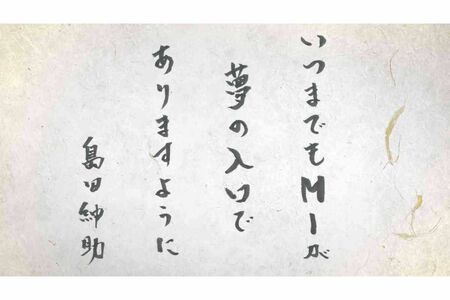 いつまでもM1が
夢の入口で
ありますように
島田紳助